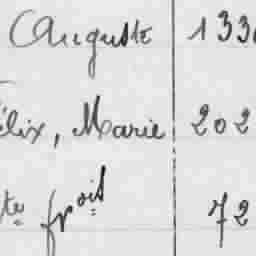 Auguste 133
élix, Marie 202
te froit 72